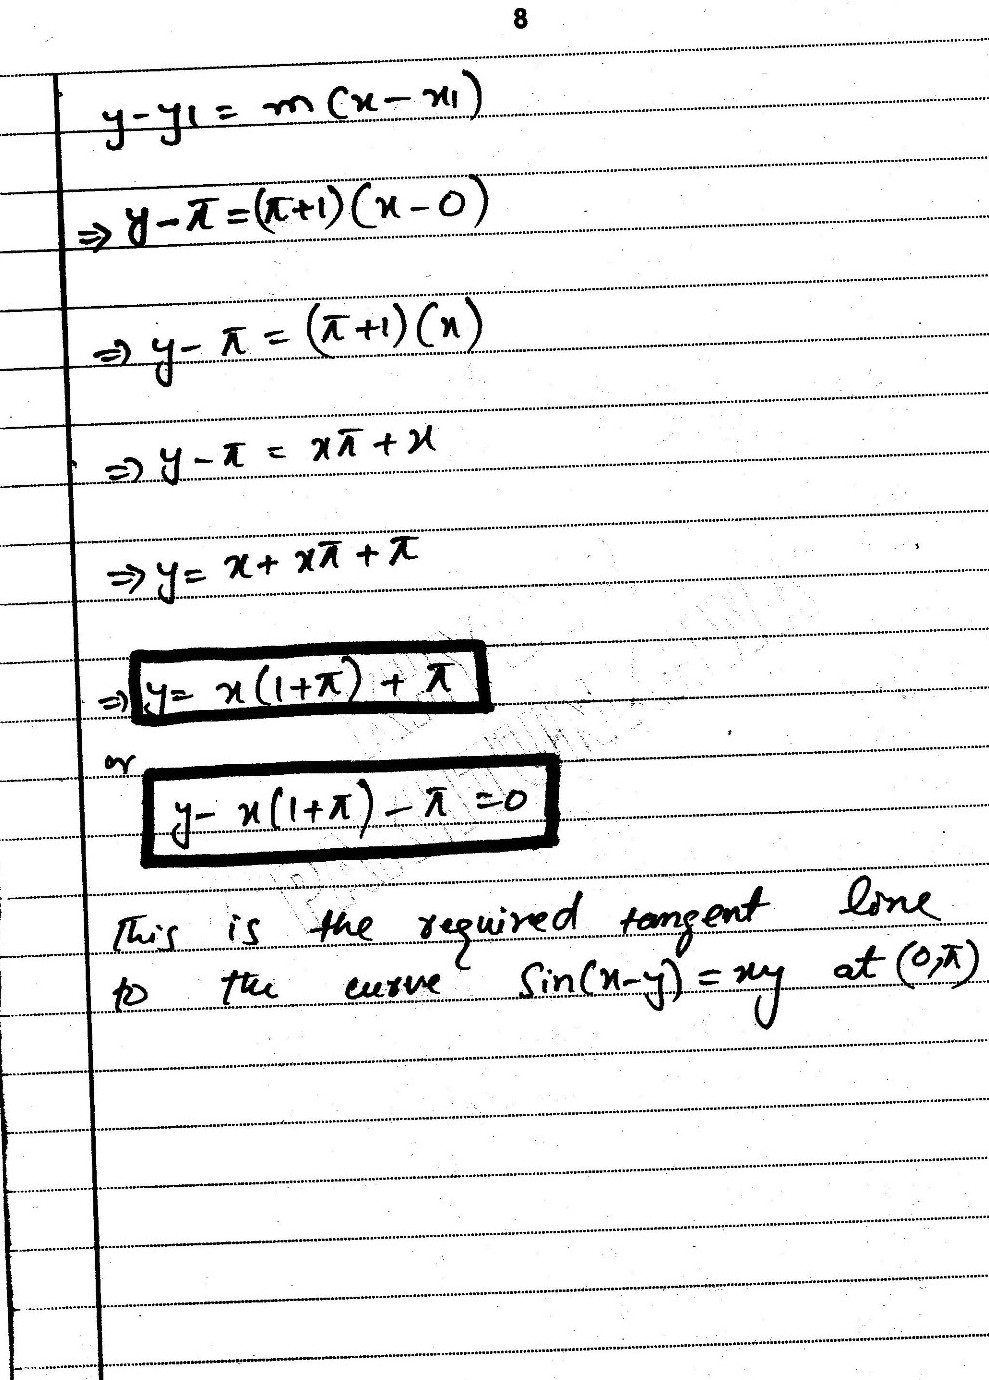 8
y-y1 = m(x-x1)
⇒ y-π=(π+1)(x-0)
⇒ y-π = (π+1)(x)
⇒ y-π = xπ+x
⇒ y= x+xπ+π
⇒ y= x(1+π)+π
or
y-x(1+π)-π=0
This is the required tangent line
to the curve Sin(x-y)=xy at (0,π)